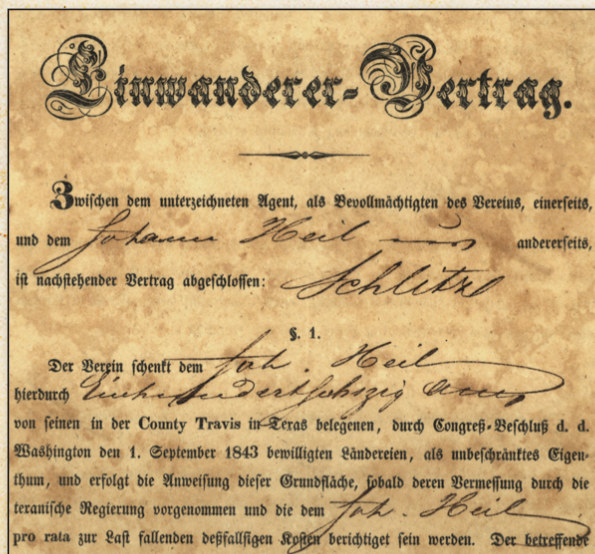 Einwanderer-Vertrag.
Zwischen dem unterzeichneten Agent, als Bevollmächtigten des Vereins, einerseits,
und dem Johann Heil aus andererseits,
ist nachstehender Vertrag abgeschlossen: Schlitz
§. 1.
Der Verein schenkt dem Joh. Heil
hierdurch Einhundertsechszig Acres
von seinen in der County Travis in Texas belegenen, durch Congreß-Beschluß d. d.
Washington den 1. September 1843 bewilligten Ländereien, als unbeschränktes Eigen-
thum, und erfolgt die Anweisung dieser Grundfläche, sobald deren Vermessung durch die
texanische Regierung vorgenommen und die dem Joh. Heil
pro rata zur Last fallenden desfallsigen Kosten berichtiget sein werden. Der betreffende